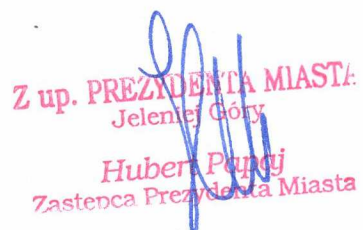 Z up. PREZYDENTA MIASTA
Jeleniej Góry
Hubert Papaj
Zastępca Prezydenta Miasta